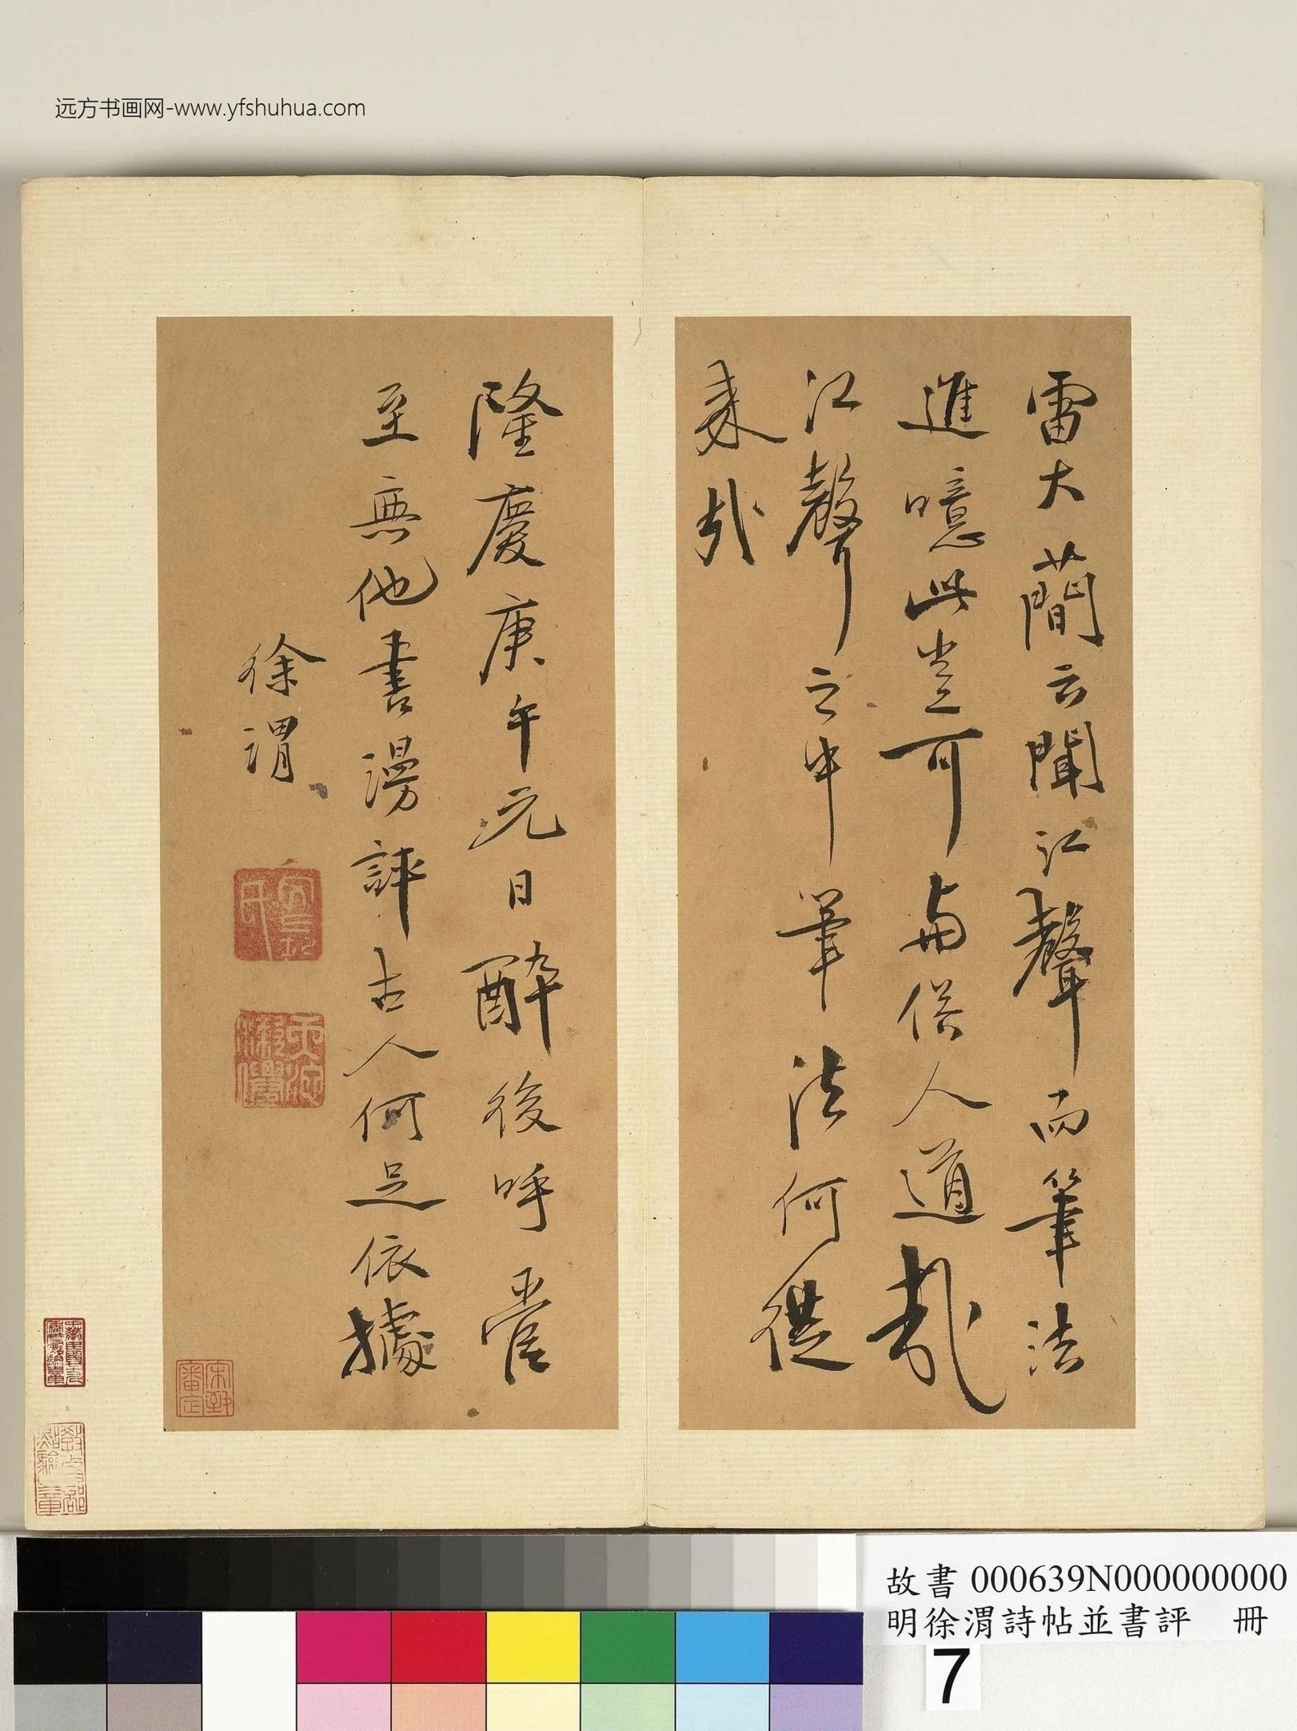 远方书画网-www.yfshuhua.com
雷大蕳云聞江聲而筆法
進噫此豈可與俗人道哉
江聲之中筆法何從
來哉
隆慶庚午元日醉後呼管
至無他書漫評古人何足依據
徐渭
故書 000639N000000000
明徐渭詩帖並書評 冊
7